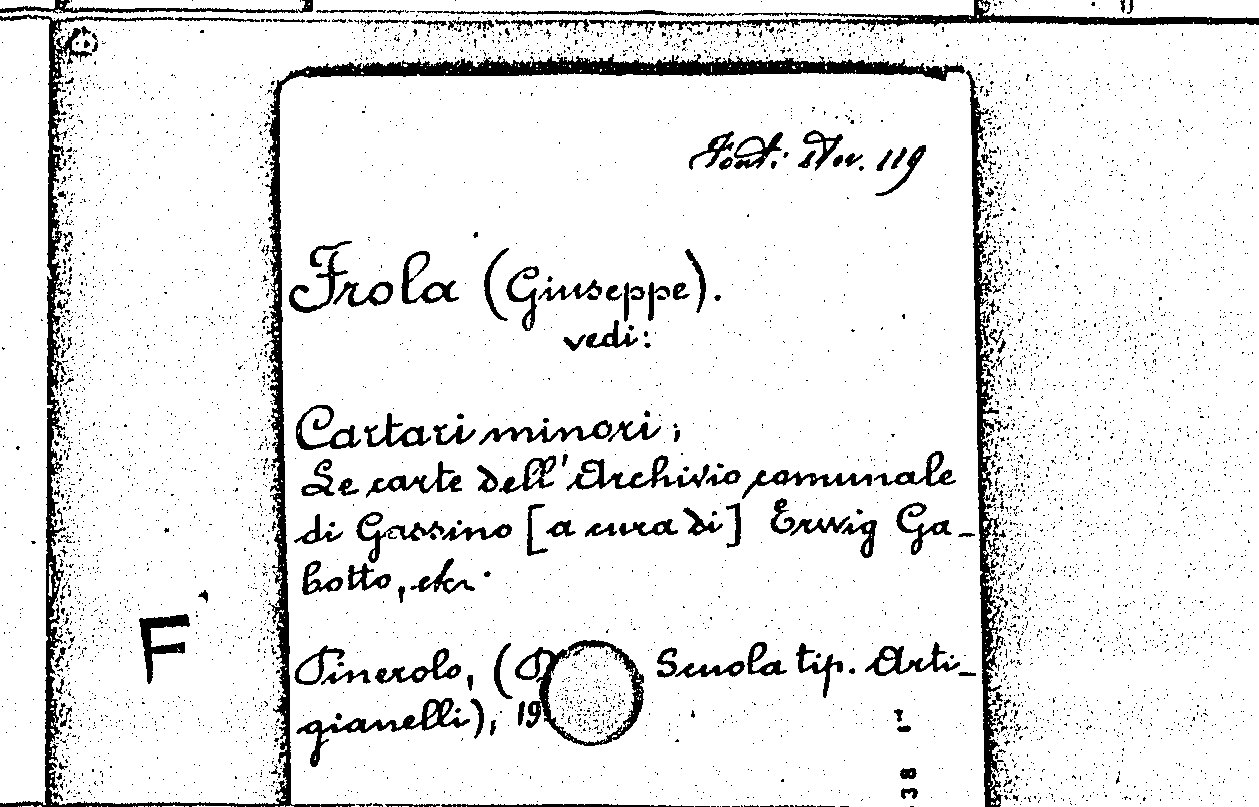 Font. Stor. 119
Frola (Giuseppe).
vedi:
Cartari minori;
Le carte dell'Archivio comunale
di Gassino [a cura di] Erwig Ga-
botto, etc.
F
Pinerolo, ( Scuola tip. Arti-
gianelli), 19
38